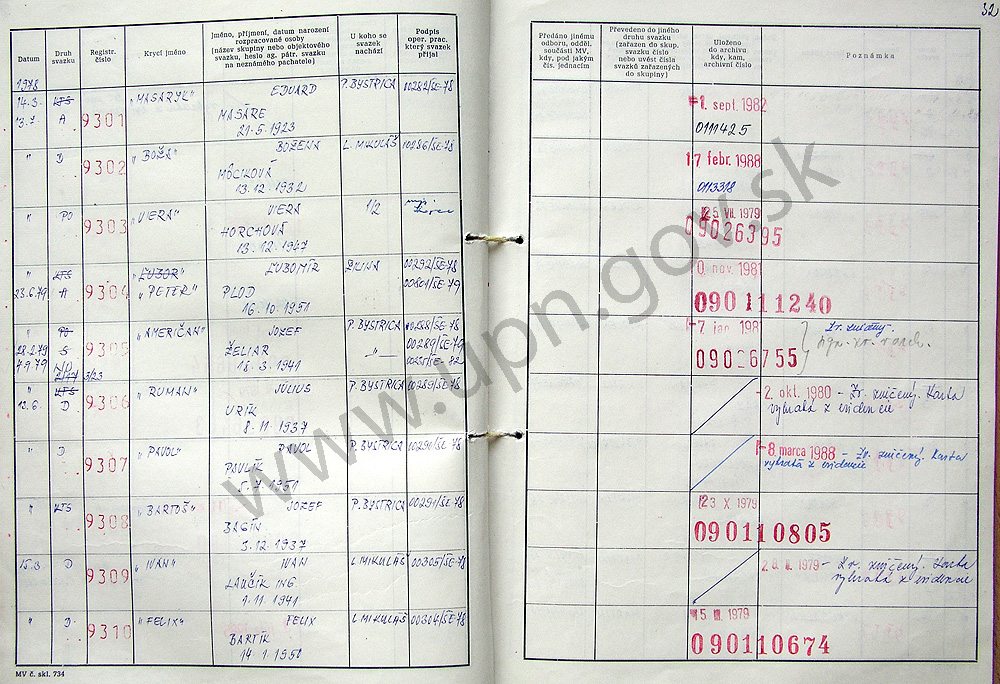 32
Datum
Druh svazku
Registr. číslo
Krycí jméno
Jméno, příjmení, datum narození
rozpracované osoby
(název skupiny nebo objektového
svazku, heslo ag. pátr. svazku
na neznámého pachatele)
U koho se
svazek
nachází
Podpis
oper. prac.
který svazek
přijal
Předáno jinému
odboru, odděl.
součásti MV,
kdy, pod jakým
čís. jednacím
Převedeno do jiného
druhu svazku
(zařazen do skup.
svazku
nebo uvést čísla
svazků zařazených
do skupiny)
Uloženo
do archivu
kdy, kam,
archivní číslo
Poznámka
1978
14.3. KTS "MASARYK" EDUARD P. BYSTRICA 00282/ŠE-78
13.7. A 9301 MASÁRE
21.5.1923
1. sept. 1982
0111425
" D 9302 "BOŽA" BOŽENA L. MIKULÁŠ 00286/ŠE-78
MÔCIKOVÁ
13.12.1932
17 febr. 1988
0113318
" PO 9303 "VIERA" VIERA 1/2
HORCHOVÁ
13.12.1947
25. VII. 1979
09026395
" KTS "ĽUBOR" ĽUBOMÍR 00292/ŠE-78
23.6.79 A 9304 "PETER" PLOD 00801/ŠE-79
16.10.1951
nov. 1981
090111240
" PO 9305 "AMERIČAN" JOZEF P. BYSTRICA 00288/ŠE-78
28.2.79 S ŽELIAR " 00289/ŠE-79
7.9.79 18.3.1941
7 jan 1981
09026755
" KTS 9306 "RUMAN" JÚLIUS P. BYSTRICA 00289/ŠE-78
13.6. D URÍK
8.11.1937
2. okt. 1980 - Zv. zničený. Karta
vybratá z evidencie
" D 9307 "PAVOL" PAVOL P. BYSTRICA 00290/ŠE-78
PAVLÍK
5.7.1951
8. marca 1988 - Zv. zničený. Karta
vybratá z evidencie
" KTS 9308 "BARTOŠ" JOZEF P. BYSTRICA 00291/ŠE-78
BAGÍN
3.12.1937
23. X. 1979
090110805
15.3 D 9309 "IVAN" IVAN L. MIKULÁŠ 00305/ŠE-78
LAUČÍK ING.
1.11.1941
1979 - Zv. zničený. Karta
vybratá z evidencie
" D 9310 "FELIX" FELIX L. MIKULÁŠ 00304/ŠE-78
BARTÍK
14.1.1950
15. III. 1979
090110674
MV č. skl. 734
www.upn.gov.sk